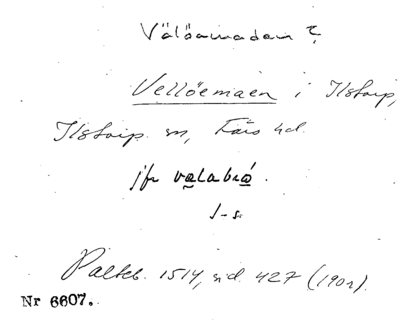 Välöamadam ?
Vellöemaen i Ilstorp,
Ilstorp sn, Färs hd.
jfr valabro.
J-s.
Palteb. 1514, sid. 427 (1901).
Nr 6607.